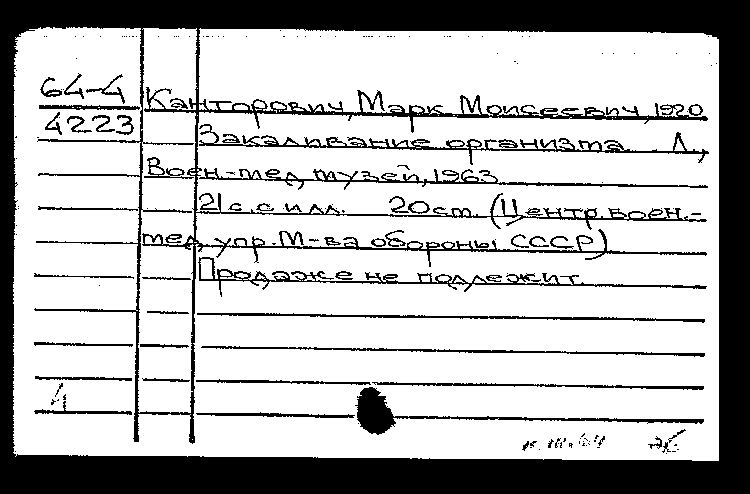 64-4 Канторович, Марк Моисеевич, 1920
4223 Закаливание организма. Л.,
Воен.-мед. музей, 1963.
21 с. с илл. 20 см. (Центр. воен.-
мед. упр. М-ва обороны СССР)
Продаже не подлежит.
4